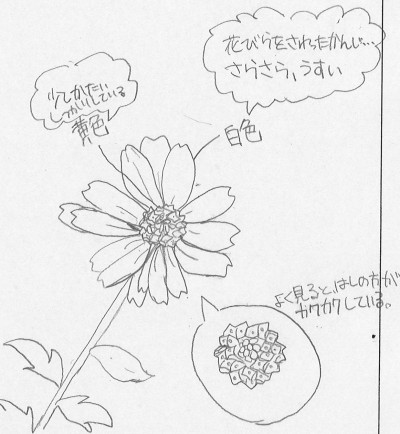 花びらをさわったかんじ…
さらさら、うすい
少しかたい
しっかりしている
黄色
白色
よく見ると、はしの方が
カクカクしている。